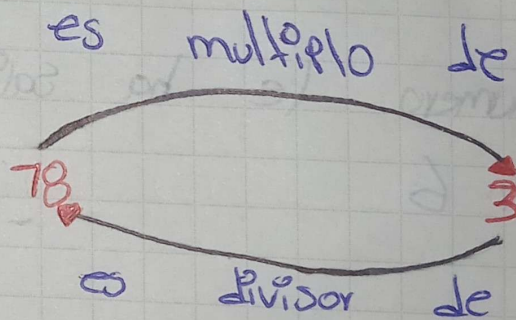 es multiplo de
78 3
es divisor de